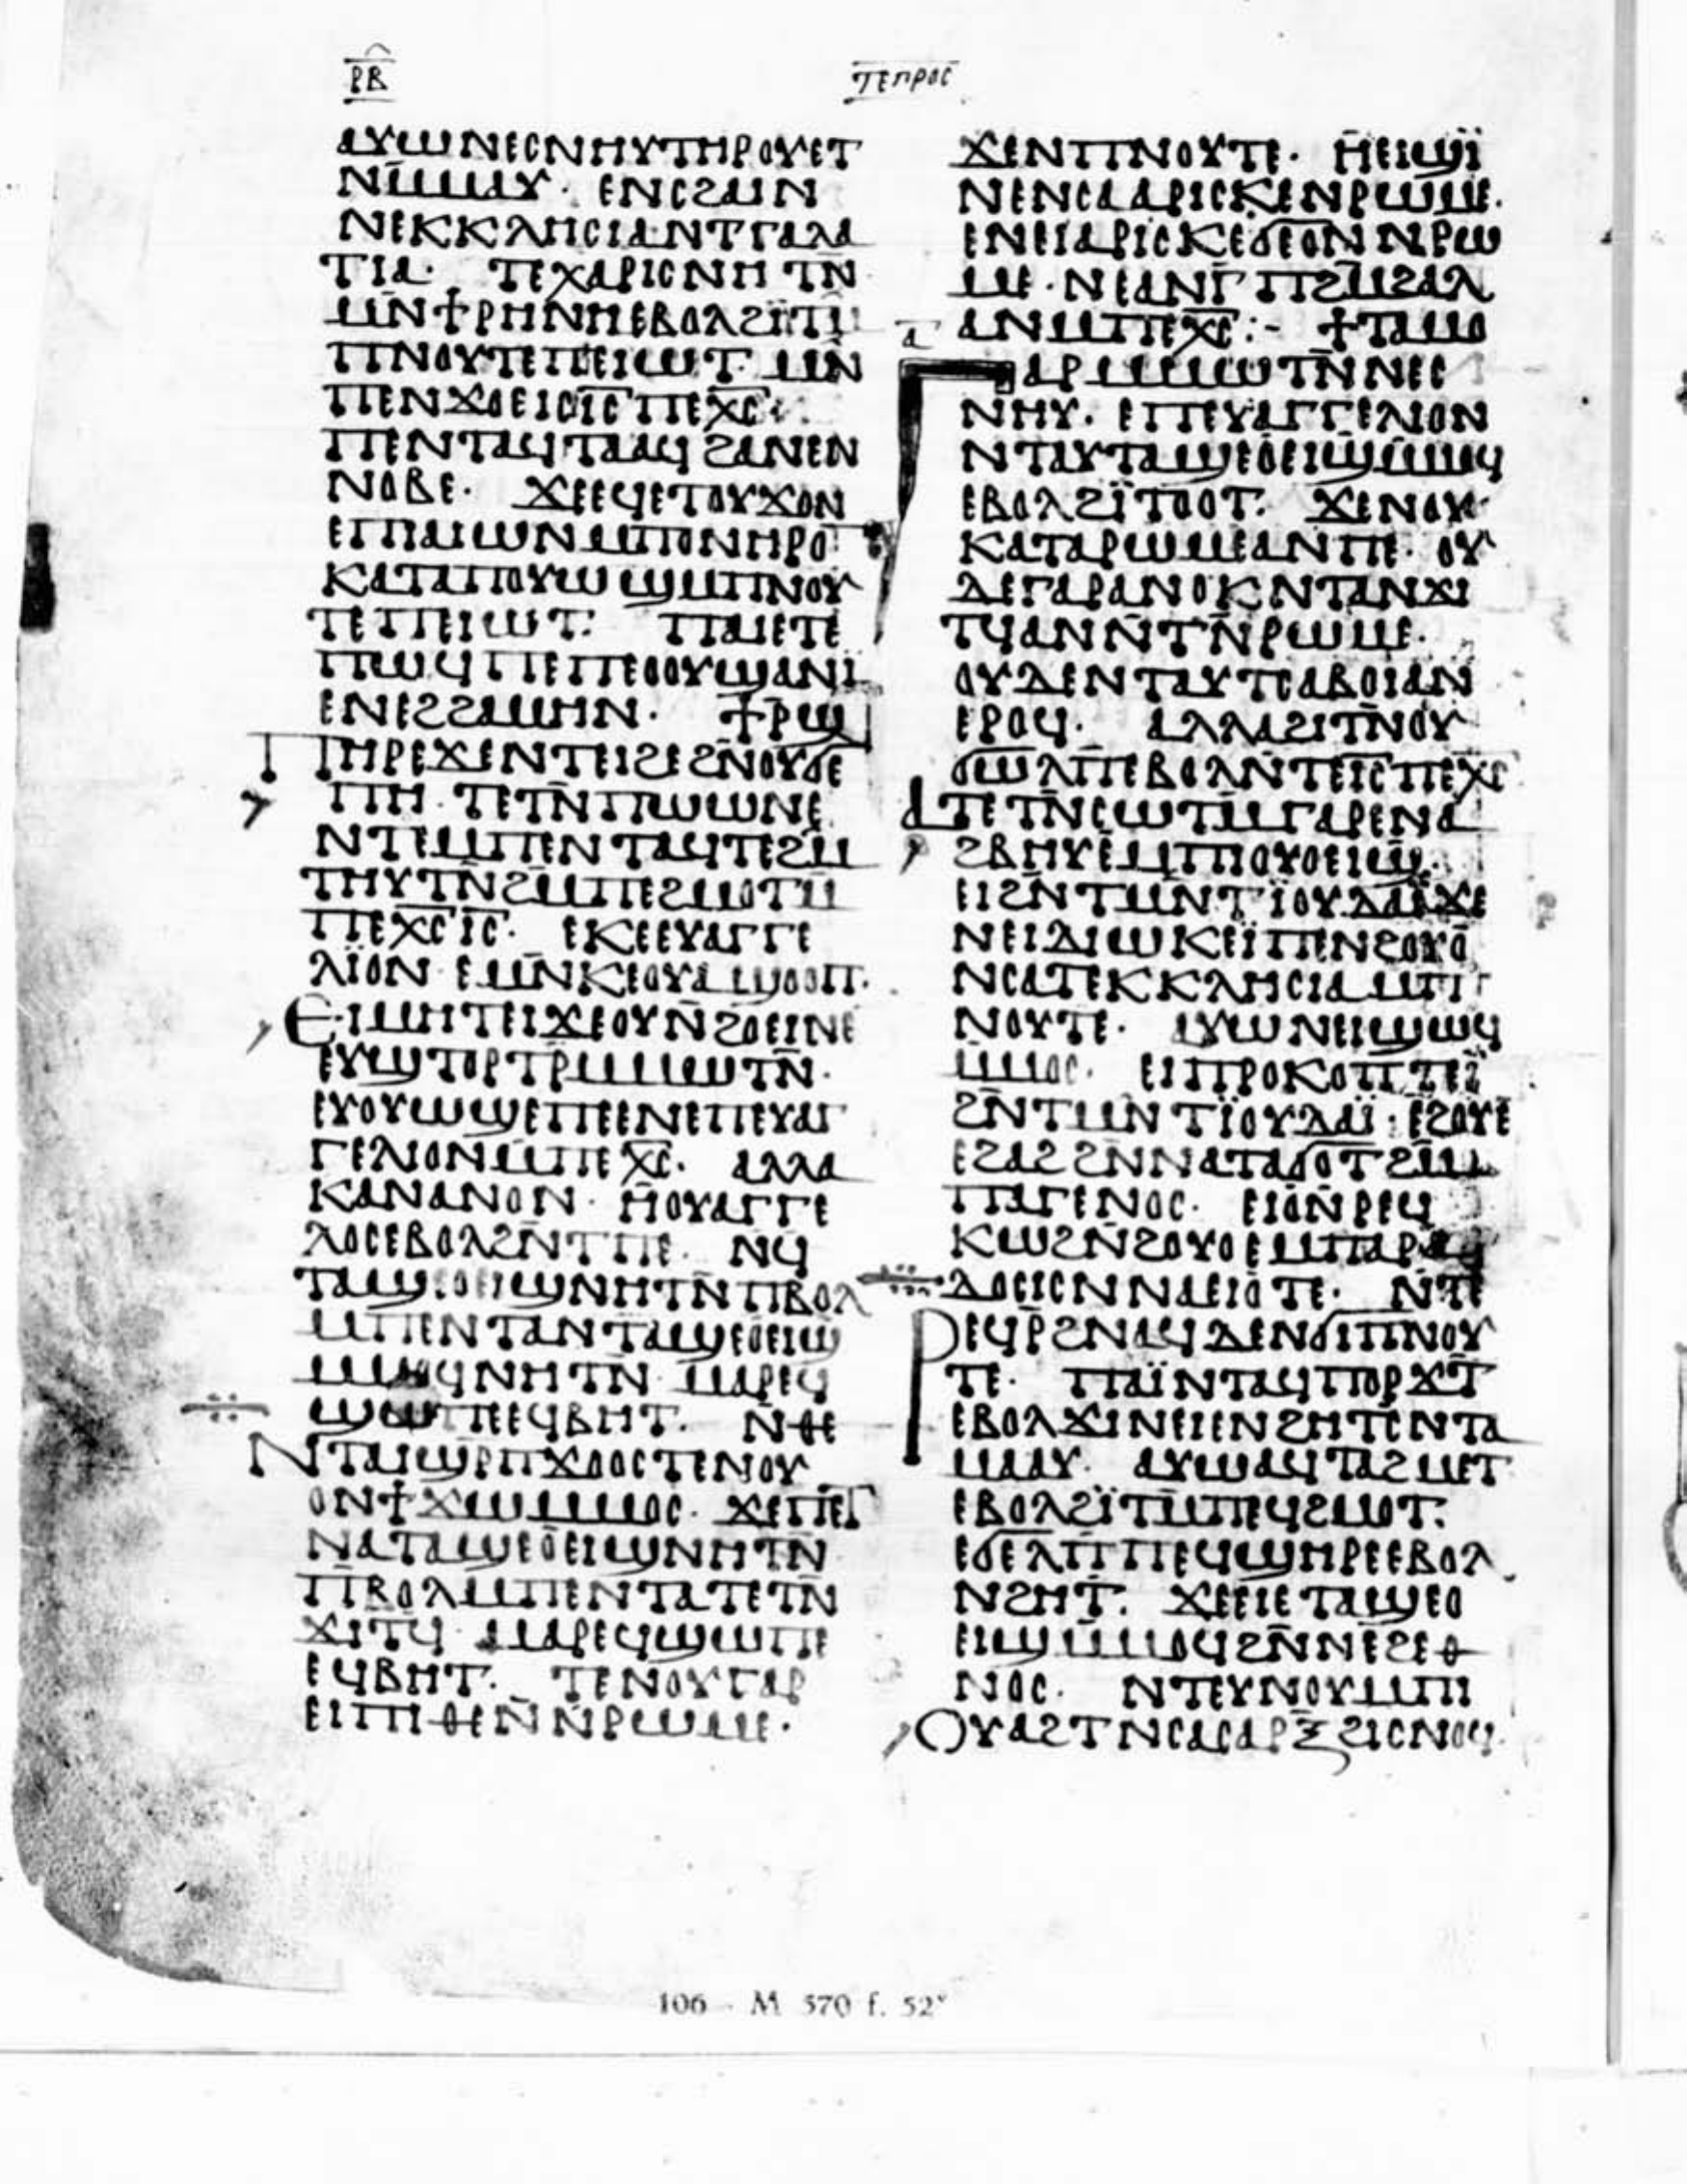 ⲣⲃ
ⲧⲉⲡⲣⲟⲥ
ⲁⲩⲱⲛⲉⲥⲛⲏⲩⲧⲏⲣⲟⲩⲉⲧ
ⲛⲙ̄ⲙⲁⲩ· ⲉⲛⲥϩⲁⲓⲛ
ⲛⲉⲕⲕⲗⲏⲥⲓⲁⲛⲧⲅⲁⲗⲁ
ⲧⲓⲁ· ⲧⲉⲭⲁⲣⲓⲥⲛⲏⲧⲛ̄
ⲙⲛ̄ϯⲣⲏⲛⲏⲉⲃⲟⲗϩⲓ̈ⲧⲙ̄
ⲡⲛⲟⲩⲧⲉⲡⲉⲓⲱⲧ· ⲙⲛ̄
ⲡⲉⲛϫⲟⲉⲓⲥⲓ̅ⲥ̅ⲡⲉⲭ̅ⲥ̅·
ⲡⲉⲛⲧⲁϥⲧⲁⲁϥϩⲁⲛⲉⲛ
ⲛⲟⲃⲉ· ϫⲉⲉϥⲉⲧⲟⲩϫⲟⲛ
ⲉⲡⲡⲁⲓⲱⲛⲙⲡⲟⲛⲏⲣⲟ̅
ⲕⲁⲧⲁⲡⲟⲩⲱϣⲙⲡⲛⲟⲩ
ⲧⲉⲡⲉⲓⲱⲧ· ⲡⲁⲓⲉⲧⲉ
ⲡⲱϥⲡⲉⲡⲉⲟⲟⲩϣⲁⲛⲓ̅
ⲉⲛⲉϩϩⲁⲙⲏⲛ· ϯⲣϣ
ⲡⲏⲣⲉϫⲉⲛⲧⲉⲓϩⲉϩⲛ̄ⲟⲩϭⲉ
ⲡⲏ· ⲧⲉⲧⲛ̄ⲡⲱⲱⲛⲉ
ⲛⲧⲉⲙ̄ⲡⲉⲛⲧⲁϥⲧⲉϩⲙ̄
ⲧⲏⲩⲧⲛ̄ϩⲙ̄ⲡⲉϩⲙⲟⲧⲙ̄
ⲡⲉⲭ̅ⲥ̅ⲓ̅ⲥ̅· ⲉⲕⲉⲉⲩⲁⲅⲅⲉ
ⲗⲓ̈ⲟⲛ ⲉⲙⲛ̄ⲕⲉⲟⲩⲁϣⲟⲟⲡ·
ⲉⲓⲙⲏⲧⲉⲓϫⲉⲟⲩⲛ̄ϩⲟⲉⲓⲛⲉ
ⲉⲩϣⲧⲟⲣⲧⲣ̄ⲙⲙⲱⲧⲛ̄·
ⲉⲩⲟⲩⲱϣⲉⲡⲉⲉⲛⲉⲡⲉⲩⲁⲅ
ⲅⲉⲗⲓⲟⲛⲙ̄ⲡⲉⲭ̅ⲥ̅· ⲁⲗⲗⲁ
ⲕⲁⲛⲁⲛⲟⲛ· ⲏⲟⲩⲁⲅⲅⲉ
ⲗⲟⲥⲉⲃⲟⲗϩⲛ̄ⲧⲡⲉ· ⲛϥ
ⲧⲁϣⲉⲟⲉⲓϣⲛⲏⲧⲛ̄ⲡⲃⲟⲗ
ⲙ̄ⲡⲉⲛⲧⲁⲛⲧⲁϣⲉⲟⲉⲓϣ
ⲙⲙⲟϥⲛⲏⲧⲛ ⲙⲁⲣⲉϥ
ϣⲱⲡⲉⲉϥⲃⲏⲧ· ⲛ̄ⲑⲉ
ⲛⲧⲁⲓϣⲣⲡϫⲟⲟⲥⲧⲉⲛⲟⲩ
ⲟⲛϯϫⲱⲙⲙⲟⲥ· ϫⲉⲡⲉⲧ
ⲛⲁⲧⲁϣⲉⲟⲉⲓϣⲛⲏⲧⲛ̄
ⲡⲃⲟⲗⲙ̄ⲡⲉⲛⲧⲁⲧⲉⲧⲛ̄
ϫⲓⲧϥ· ⲙⲁⲣⲉϥϣⲱⲡⲉ
ⲉϥⲃⲏⲧ· ⲧⲉⲛⲟⲩⲅⲁⲣ
ⲉⲓⲡⲓⲑⲉⲛ̄ⲛ̄ⲣⲱⲙⲉ·
ϫⲉⲛⲡⲛⲟⲩⲧⲉ· ⲏⲉⲓϣⲓ̈
ⲛⲉⲛⲥⲁⲁⲣⲓⲥⲕⲉⲛⲣⲱⲙⲉ·
ⲉⲛⲉⲓⲁⲣⲓⲥⲕⲉϭⲉⲟⲛⲛⲣⲱ
ⲙⲉ· ⲛⲉⲁⲛⲅ̄ⲡϩⲙ̄ϩⲁⲗ
ⲁⲛⲙ̄ⲡⲉⲭ̅ⲥ̅:- ϯⲧⲁⲙⲟ
ⲅⲁⲣⲙⲙⲱⲧⲛ̄ⲛⲉⲥ
ⲛⲏⲩ· ⲉⲡⲉⲩⲁⲅⲅⲉⲗⲓⲟⲛ
ⲛⲧⲁⲩⲧⲁϣⲉⲟⲉⲓϣⲙ̄ⲙⲟϥ
ⲉⲃⲟⲗϩⲓ̈ⲧⲟⲟⲧ· ϫⲉⲛⲟⲩ
ⲕⲁⲧⲁⲣⲱⲙⲉⲁⲛⲡⲉ· ⲟⲩ
ⲇⲉⲅⲁⲣⲁⲛⲟⲕⲛⲧⲁⲛϫⲓ
ⲧϥⲁⲛⲛ̄ⲧⲛ̄ⲣⲱⲙⲉ·
ⲟⲩⲇⲉⲛⲧⲁⲩⲧⲥⲁⲃⲟⲓⲁⲛ
ⲉⲣⲟϥ· ⲁⲗⲗⲁϩⲓⲧⲛ̄ⲟⲩ
ϭⲱⲗⲡⲉⲃⲟⲗⲛ̄ⲧⲉⲓ̅ⲥ̅ⲡⲉⲭ̅ⲥ̅
ⲁⲧⲉⲧⲛ̄ⲥⲱⲧⲙ̄ⲅⲁⲣⲉⲛⲁ
ϩⲃⲏⲩⲉⲙ̄ⲡⲓⲟⲩⲟⲉⲓϣ·
ⲉⲓϩⲛ̄ⲧⲙⲛ̄ⲧⲓ̈ⲟⲩⲇⲁⲓ̈ϫⲉ
ⲛⲉⲓⲇⲓⲱⲕⲉⲓ̈ⲡⲉⲛϩⲟⲩⲟ̄
ⲛⲥⲁⲧⲉⲕⲕⲗⲏⲥⲓⲁⲙ̄ⲡ
ⲛⲟⲩⲧⲉ· ⲁⲩⲱⲛⲉⲓϣⲱϥ
ⲙ̄ⲙⲟⲥ· ⲉⲓⲡⲣⲟⲕⲟⲡⲧⲉⲓ̈
ϩⲛ̄ⲧⲙⲛⲧⲓ̈ⲟⲩⲇⲁⲓ̈· ⲉϩⲟⲩⲉ
ⲉϩⲁϩϩⲛ̄ⲛⲁⲧⲁϭⲟⲧϩⲙ̄
ⲡⲁⲅⲉⲛⲟⲥ· ⲉⲓⲟⲛ̄ⲣⲉϥ
ⲕⲱϩⲛ̄ϩⲟⲩⲟⲉⲙ̄ⲡⲁⲣⲁ
ⲇⲟⲥⲓⲥⲛⲛⲁⲉⲓⲟⲧⲉ· ⲛ̄ⲧⲉ
ⲣⲉϥⲣ̄ϩⲛⲁϥⲇⲉⲛϭⲓⲡⲛⲟⲩ
ⲧⲉ· ⲡⲁⲓ̈ⲛⲧⲁϥⲡⲟⲣϫⲧ̄
ⲉⲃⲟⲗϫⲓⲛⲉⲓⲉⲛϩⲏⲧⲉⲛⲧⲁ
ⲙⲁⲁⲩ· ⲁⲩⲱⲁϥⲧⲁϩⲙⲉⲧ
ⲉⲃⲟⲗϩⲓ̈ⲧⲙ̄ⲡⲉϥϩⲙⲟⲧ·
ⲉϭⲉⲗⲡⲡⲉϥϣⲏⲣⲉⲉⲃⲟⲗ
ⲛϩⲏⲧ· ϫⲉⲉⲓⲉⲧⲁϣⲉⲟ
ⲉⲓϣⲙ̄ⲙⲟϥϩⲛ̄ⲛⲉϩⲉⲑ
ⲛⲟⲥ· ⲛⲧⲉⲩⲛⲟⲩⲙ̄ⲡⲓ
ⲟⲩⲁϩⲧⲛⲥⲁⲥⲁⲣⲝϩⲓⲥⲛⲟϥ·
106 - M 570 f. 52ᵛ